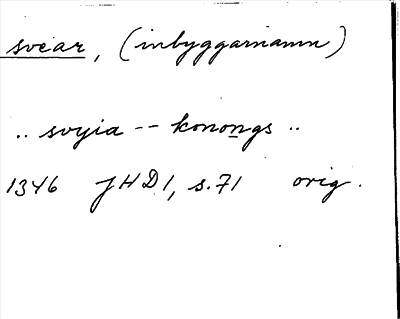 svear, (inbyggarnamn)
.. svyia -- konongs ..
1346 JHD1, s.71 orig.